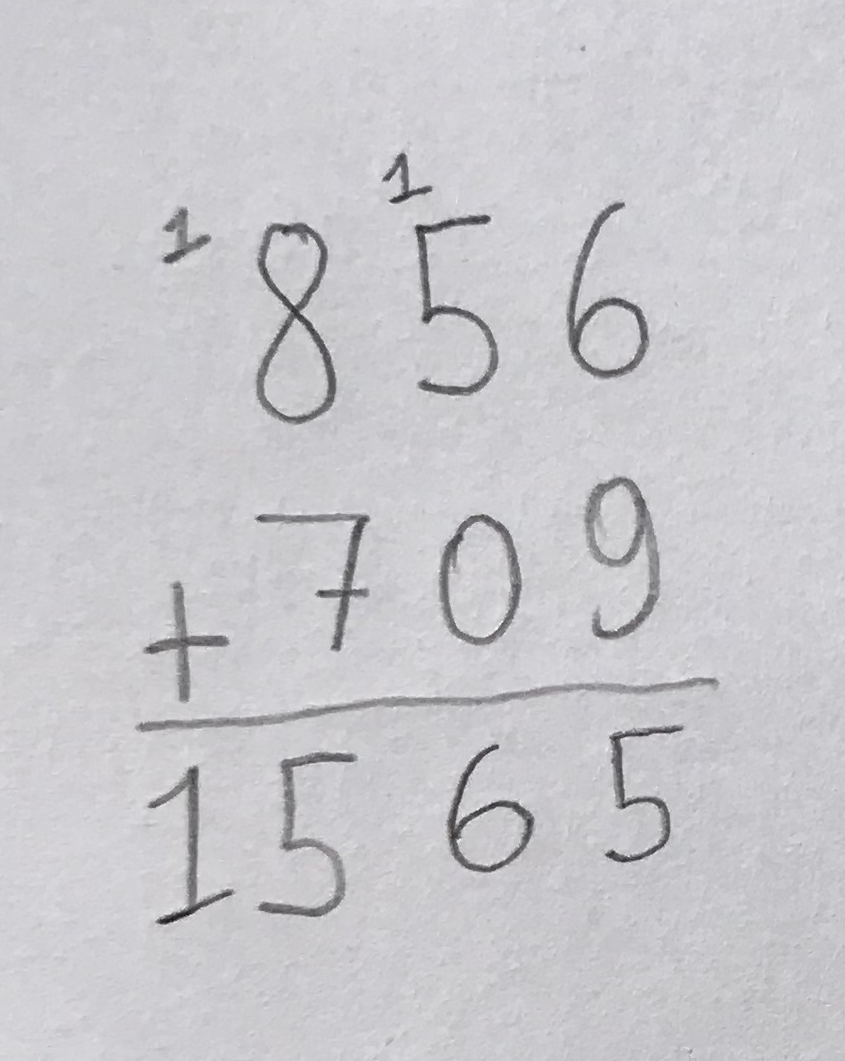 1 1
856
+709
1565